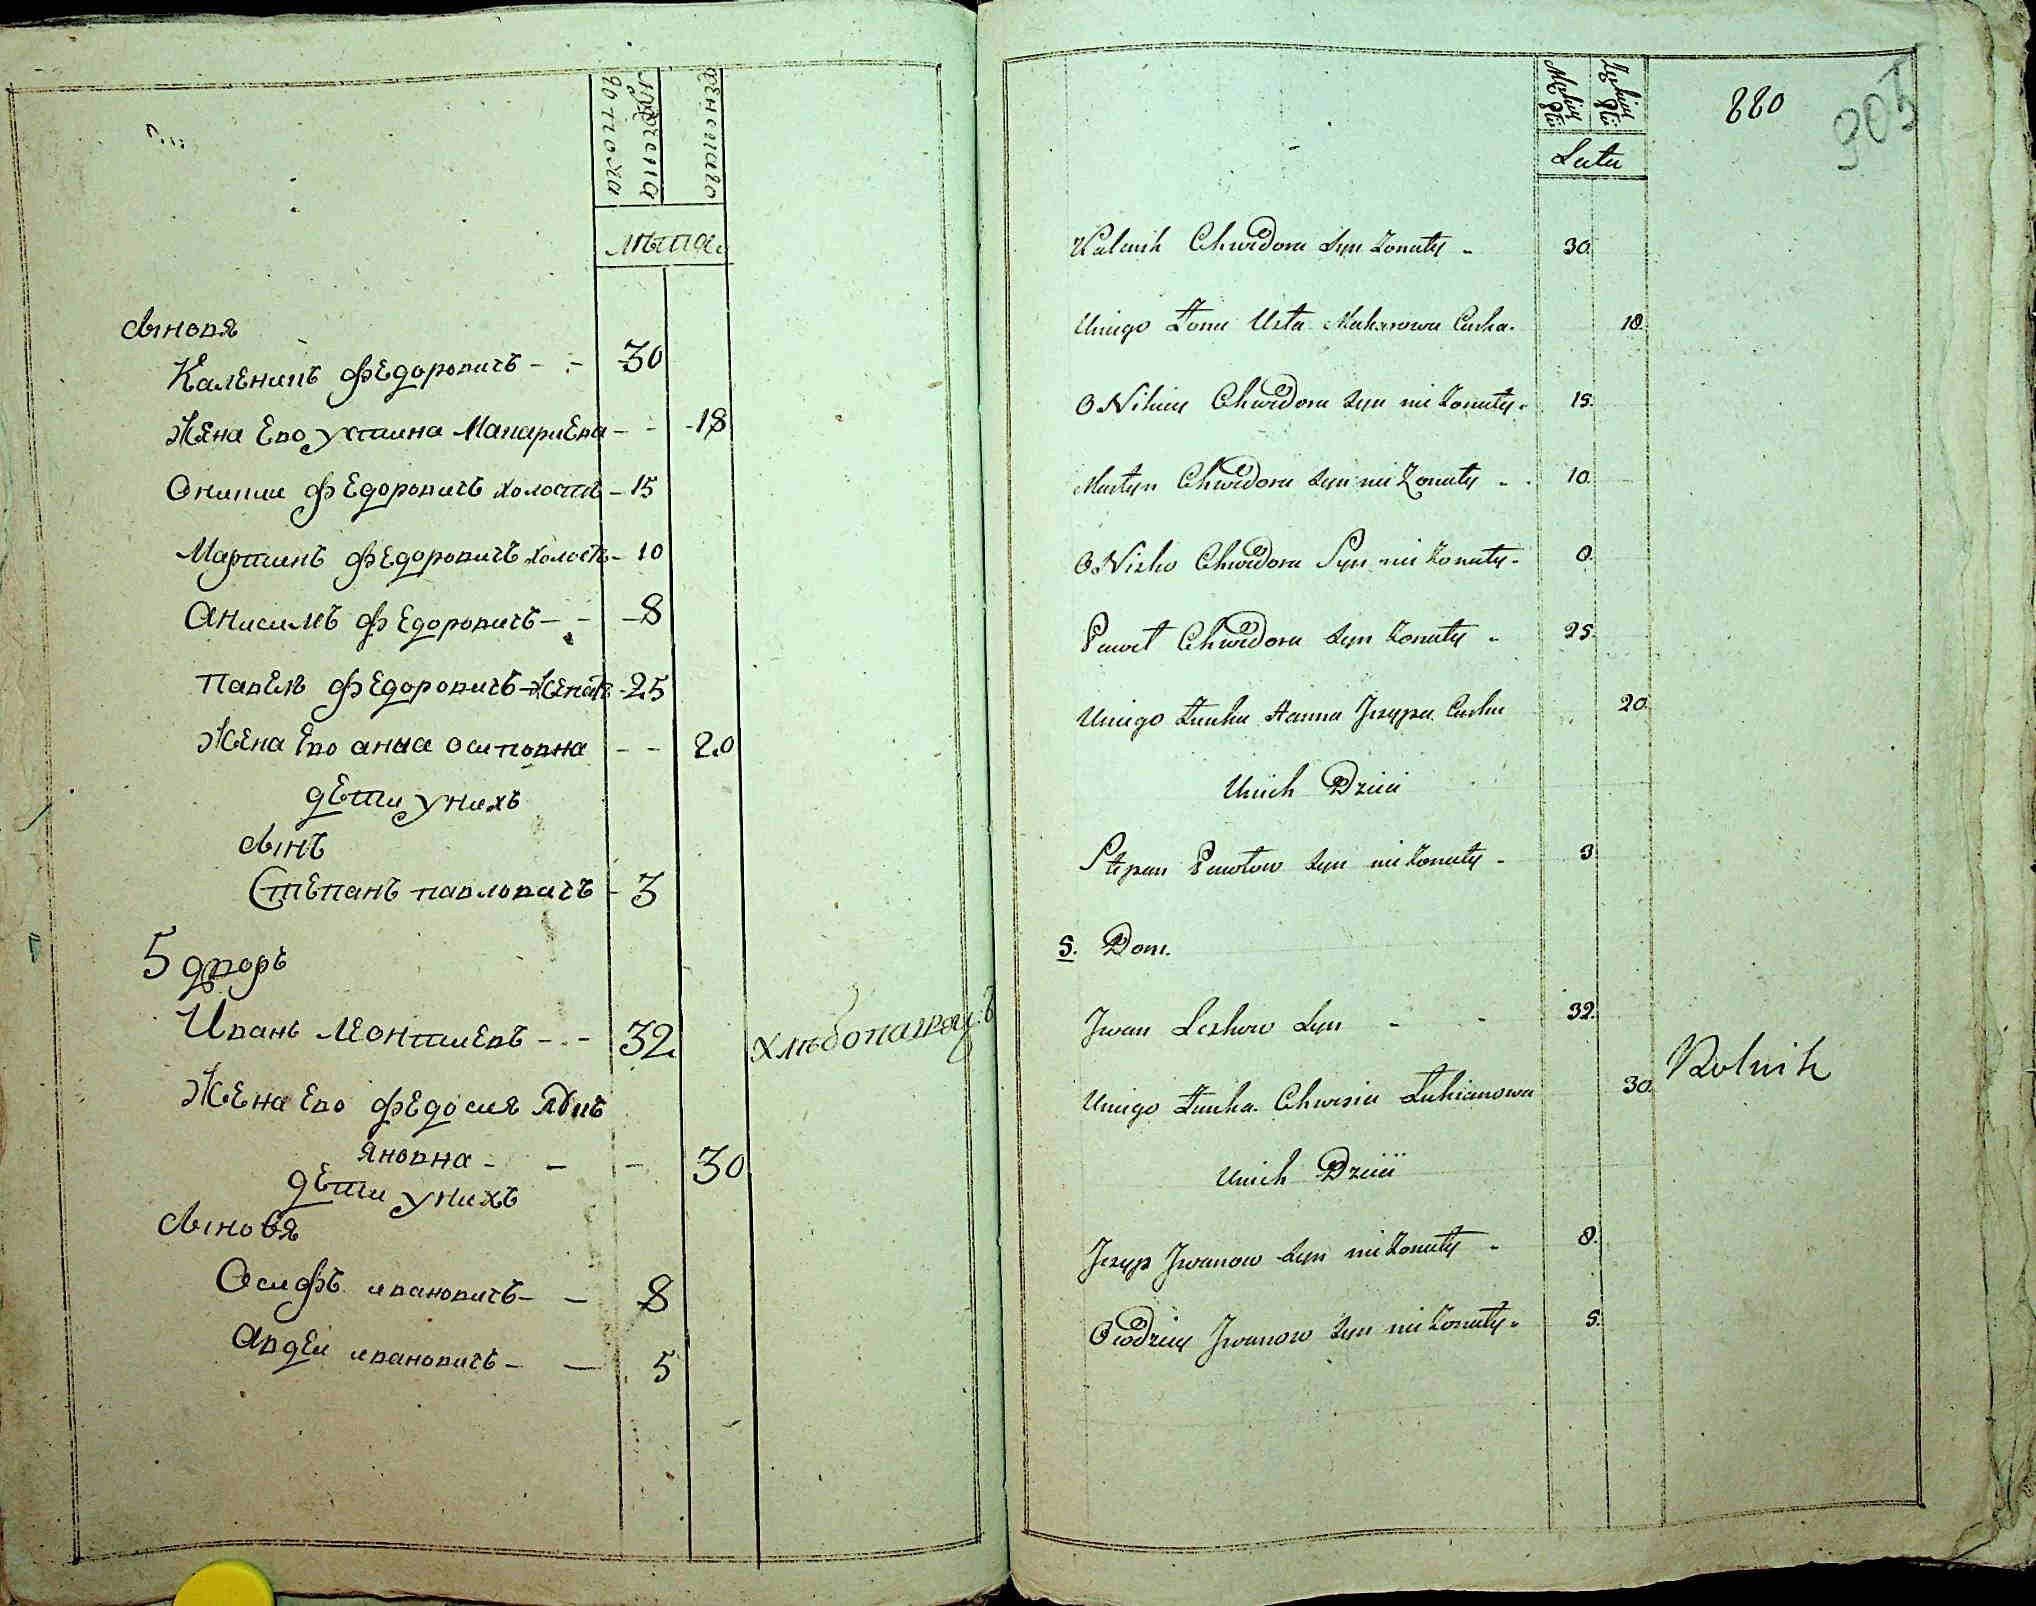 мужеска
до пола
женскаго
лѣта
сыновя
Каленикъ федоровичъ - - 30
жена Ево Устина Макариева - - 18
Оникии федоровичъ холостъ - 15
Мартинъ федоровичъ холостъ - 10
Анисимъ федоровичъ - - 8
павелъ федоровичъ женатъ - 25
жена Ево анна осиповна - - 20
дети у нихъ
сынъ
Степанъ павловичъ - 3
5 дворъ
Иванъ леонтиевъ - - 32 хлѣбопашецъ
жена Ево федосия
яновна - - - 30
дети у нихъ
сыновя
Осифъ ивановичъ - - 8
Авдеи ивановичъ - - 5
880
905
Męskiey Płci
Żeńskiey Płci
Lata
Kalinik Chwedora Syn Żonaty - 30.
U niego Żona Usta Makarowa Curka. 18.
ONikiey Chwedora Syn nie Żonaty. 15.
Martyn Chwedora Syn nie Żonaty - . 10.
ONisko Chwedora Syn nie Żonaty. 8.
Paweł Chwedora Syn Żonaty - 25.
U niego Żonka Hanna Jezypa Curka 20.
U nich Dzieci
Stepan Pawłow Syn nie Żonaty - 3.
5. Dom.
Jwan Leshow Syn - - 32.
U niego Żonka Chwesia Łukianowa 30. Rolnik
U nich Dzieci
Jezyp Jwanow Syn nie Żonaty - 8.
Owdziey Jwanow Syn nie Żonaty. 5.